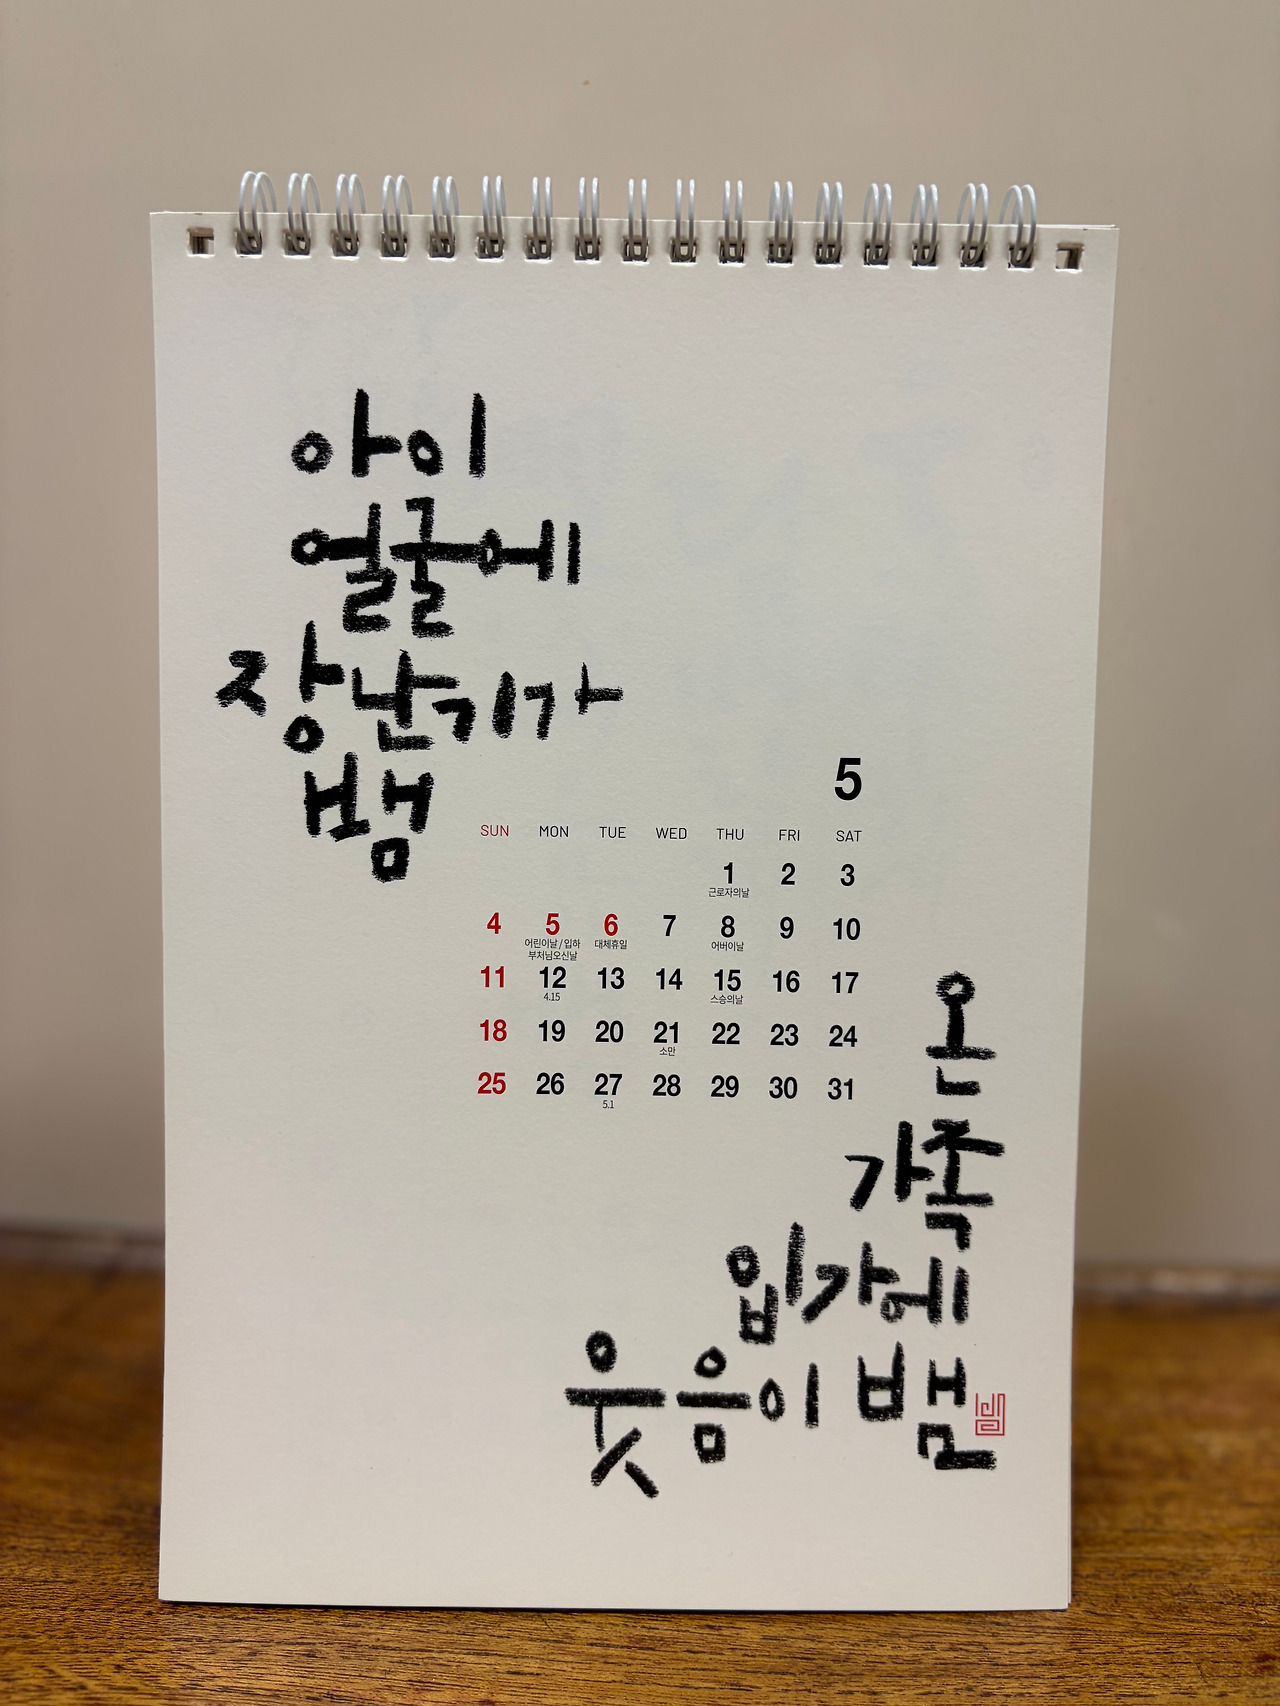 아이
얼굴에
장난기가
뱀
5
SUN MON TUE WED THU FRI SAT
1 2 3
근로자의날
4 5 6 7 8 9 10
어린이날 / 입하 대체휴일 어버이날
부처님오신날
11 12 13 14 15 16 17
4.15 스승의날
18 19 20 21 22 23 24
소만
25 26 27 28 29 30 31
5.1
온
가족
입가에
웃음이 뱀